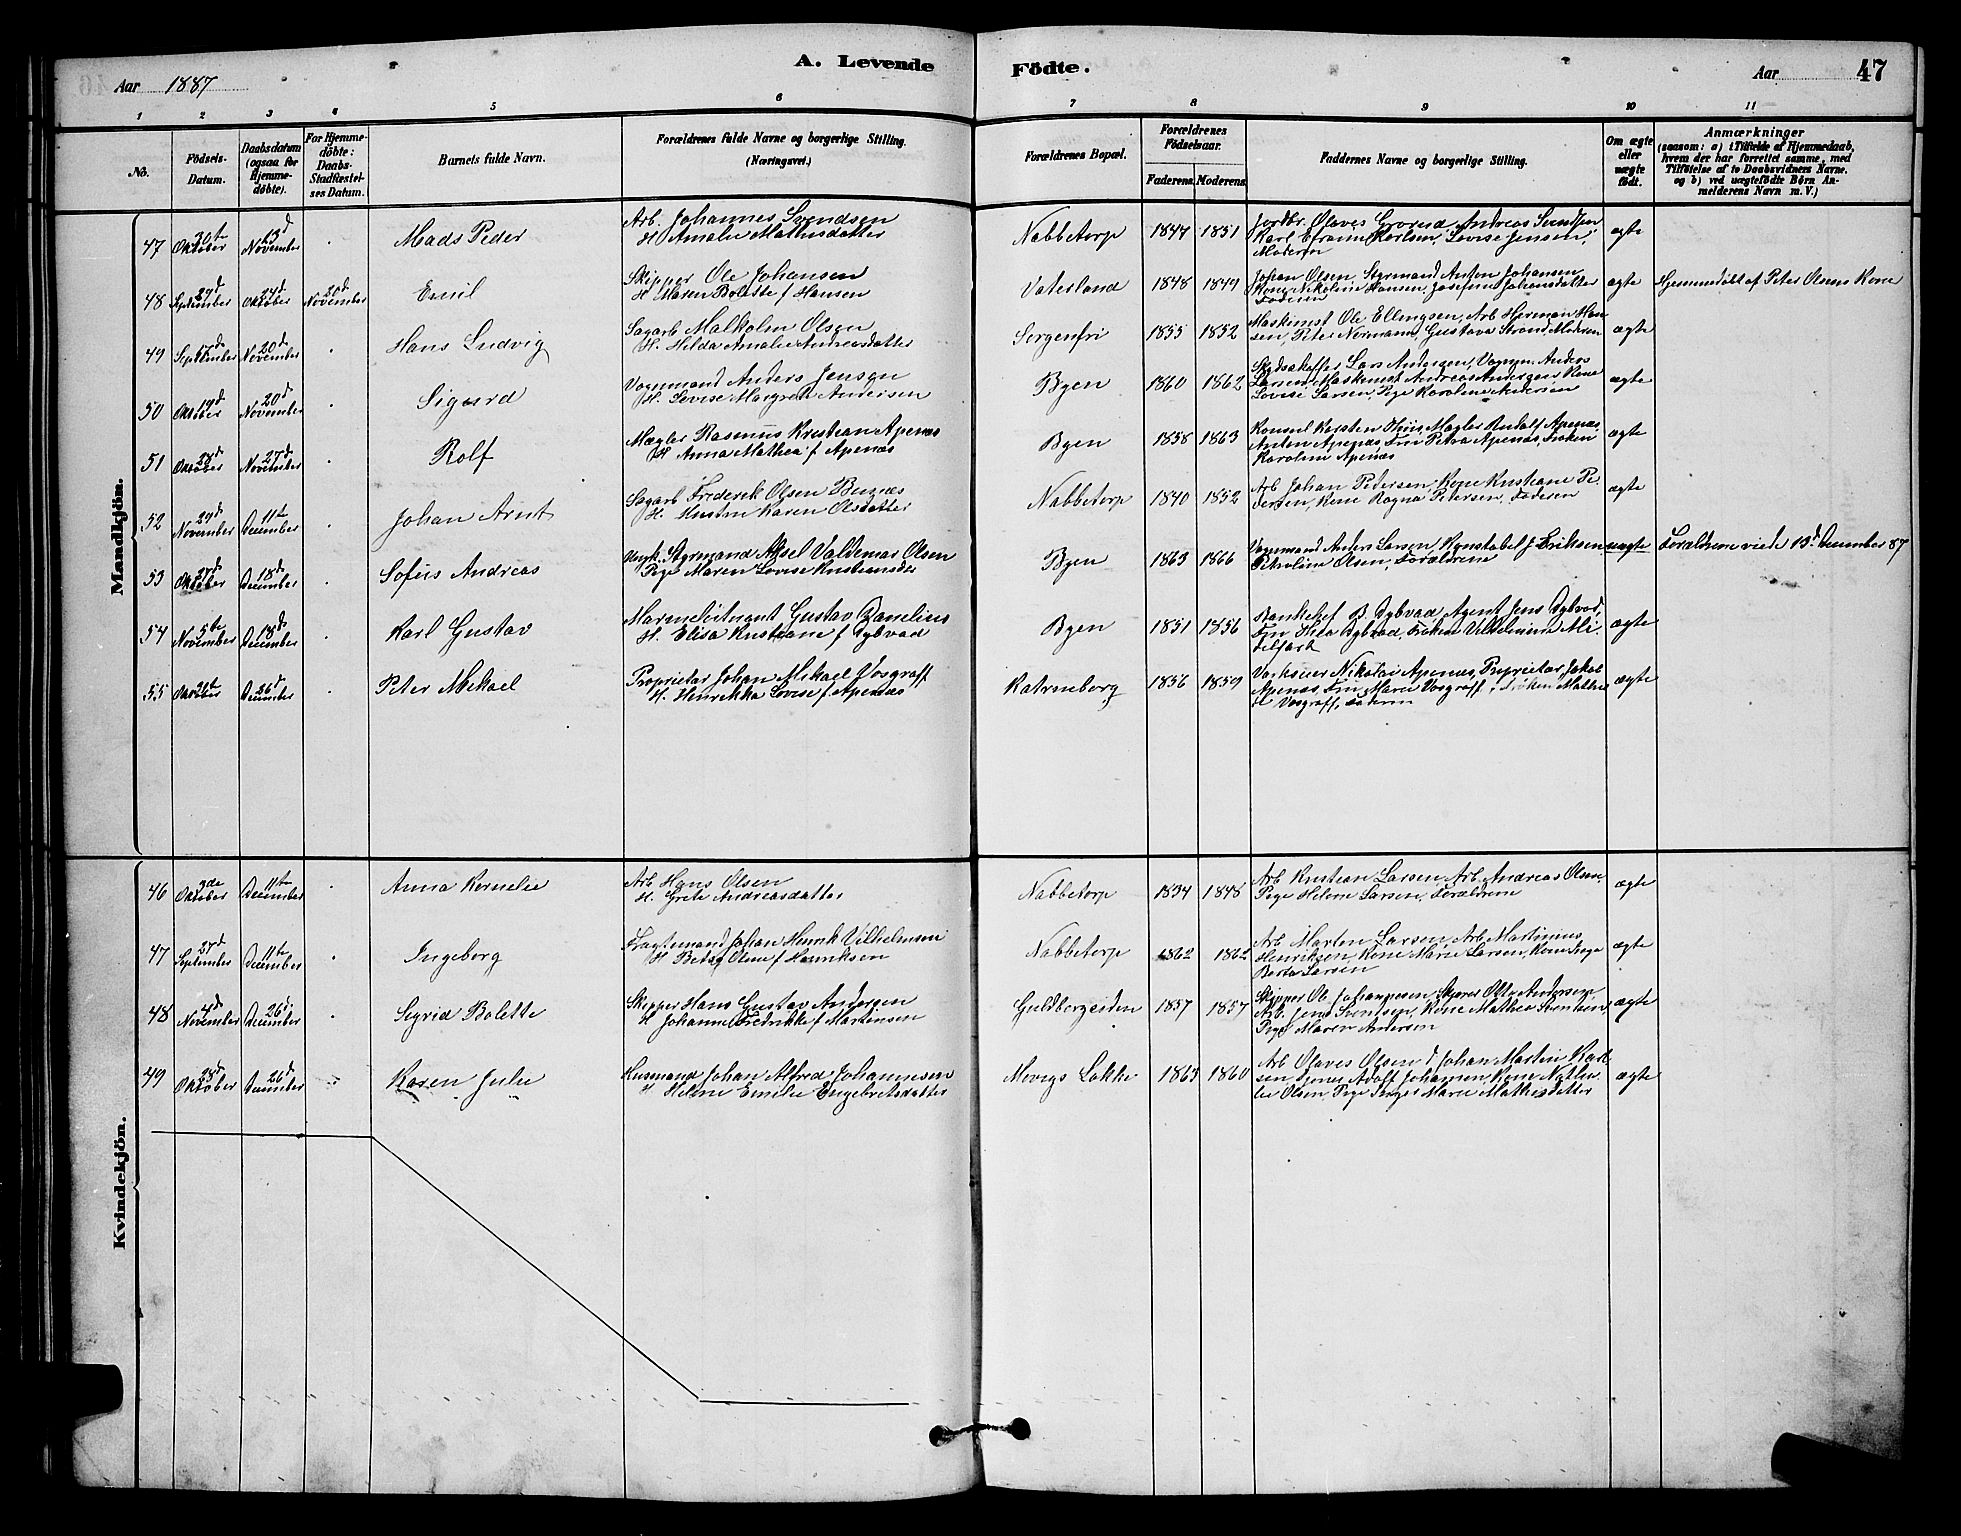 Aar 1887
A. Levende
Födte.
Aar
47
1 2 3 4 5 6 7 8 9 10 11
No.
Födsels-Datum.
Daabsdatum (ogsaa for Hjemme-döbte).
For Hjemme-döbte: Daabs-Stadfæstel-ses Datum.
Barnets fulde Navn.
Forældrenes fulde Navne og borgerlige Stilling. (Næringsvei.)
Forældrenes Bopæl.
Forældrenes Födselsaar.
Faderens. Moderens.
Faddernes Navne og borgerlige Stilling.
Om ægte eller uægte födt.
Anmærkninger
(saasom: a) i Tilfælde af Hjemmedaab,
hvem der har forrettet samme, med
Tilföielse af to Daabsvidners Navne.
og b) ved uægtefödte Börn An-
melderens Navn m. V.)
Mandkjön.
47 31te Oktober 13d November Mads Peder
Arb. Johannes Svendsen
H. Amalie Mathisdatter
Nabbetorp 1847 1851
Jordbr. Olaves Grorud, Andreas Svendsen
Karl Efraim Karlsen, Lovise Jensen,
Moderen
ægte
48 September 24d Oktober 20d November Emil
Skipper Ole Johansen
H. Maren Bolette f. Hansen
Vaterland 1848 1849
Johan Olsen, Styrmand Anton Johansen
Kone Nikoline Hansen, Josefine Johansdatter
Faderen
ægte
Hjemmedöbt af Peter Olsens Kone
49 September 20d November Hans Ludvig
Sagarb. Malkolm Olsen
H. Hilda Amalie Andreasdatter
Sorgenfri 1855 1852
Maskinist Ole Ellingsen, Arb. Herman Han
sen, Peter Normann, Gustava Strand, Moderen
ægte
50 19d Oktober 20d November Sigurd
Vognmand Anders Jensen
H. Lovise Margrete Andersen
Byen 1860 1862
Lars Andersen, Vognm. Anders
Larsen, Maskinist Andreas Andersens Kone
Lovise Larsen, Pige Karoline Andersen
ægte
51 Oktober 27d November Rolf
Mægler Rasmus Kristian Apenæs
H. Anna Mathea f. Apenæs
Byen 1858 1863
Konsul Karsten Thiis, Mægler Rudolf Apenæs,
Anton Apenæs, Fru Petra Apenæs, Fröken
Karoline Apenæs
ægte
52 November 11te December Johan Arnt
Sagarb. Frederik Olsen
H. Karen Olsdatter
Nabbetorp 1840 1852
Arb. Johan Pedersen, Kone Kristiane Pe-
dersen, Kone Ragna Petersen, Faderen
ægte
53 27d Oktober 18d December Sofus Andreas
Ungk. Styrmand Aksel Valdemar Olsen
Pige Maren Lovise Kristiansdr
Byen 1863 1866
Vognmand Anders Larsen, Konstabel J. Eriksen
Petroline Olsen, Forældrene
uægte
Forældrene viede 13d December 87
54 5te November 18d December Karl Gustav
Marinelöitnant Gustav Danelius
H. Elisa Kristiane f. Dybvad
Byen 1851 1856
Bankchef B. Dybvad, Agent Jens Dybvad,
Fru Thea Dybvad, Fröken Vilhelmine Mi-
delfart
ægte
55 21te Oktober 26d December Peter Mikael
Proprietær Johan Mikael Vosgraff
H. Henrikka Lovise f. Apenæs
Katrineborg 1856 1859
Nikolai Apenæs, Proprietær Jakob
Apenæs, Fru Marie Vosgraff, Fröken Mathil
de Vosgraff, Faderen
ægte
Kvindekjön.
46 3de Oktober 11te December Anna Kornelie
Arb. Hans Olsen
H. Grete Andreasdatter
Nabbetorp 1834 1848
Arb. Kristian Larsen, Arb. Andreas Olsen,
Pige Helene Larsen, Forældrene
ægte
47 27d September 11te December Ingeborg
Fragtemand Johan Henrik Vilhelmsen
H. Betsy Oline f. Henriksen
Nabbetorp 1862 1862
Arb. Morten Larsen, Arb. Martinius
Henriksen, Kone Marie Larsen, Kone Inga
Berta Larsen
ægte
48 4d November 26d December Sigrid Bolette
Skipper Hans Gustav Andersen
H. Johanne Fredrikke f. Martinsen
Guldbergsiden 1857 1857
Skipper Ole Johannesen, Skipper Otto Andersen
Arb. Jens Svendsen, Kone Mathea Svendsen,
Pige Maren Andersen
ægte
49 28d Oktober 26d December Karen Julie
Husmand Johan Alfred Johannesen
H. Helene Emilie Engebretsdatter
Movigs Løkke 1863 1860
Arb. Olaves Olsen, Johan Martin Karl
sen, Adolf Johansen, Kone Natha
lie Olsen, Pige Inger Marie Mathisdatter
ægte